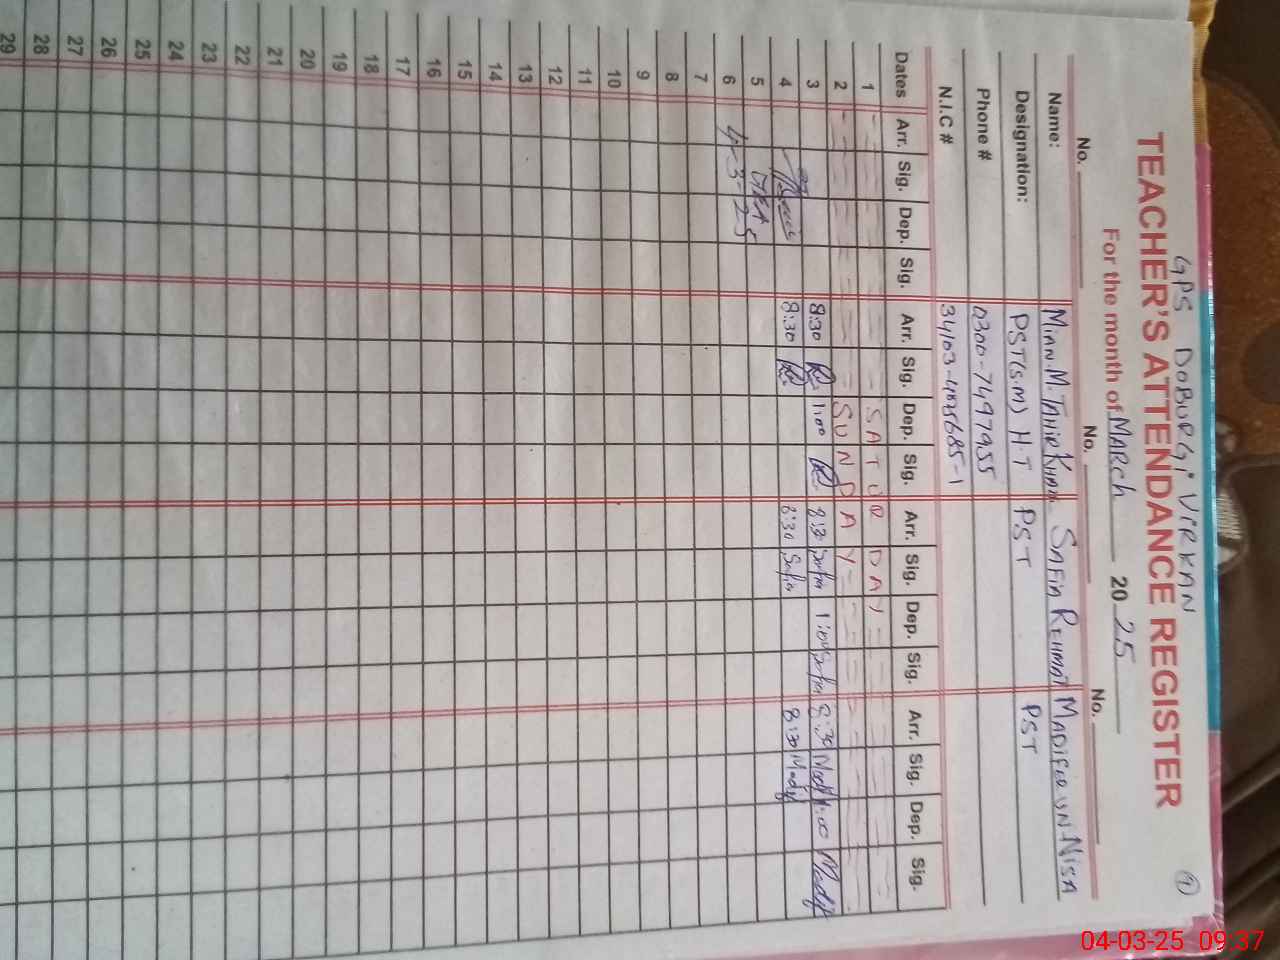 GPS DOBURGI VIRKAN
TEACHER'S ATTENDANCE REGISTER
For the month of MARCH 2025
No. No. No.
Name: MIAN.M.TAHIR KHAN SAFIA REHMAT MADIFIA UN NISA
Designation: PST(S.M) H.T PST PST
Phone # 0300-7497955
N.I.C # 34103-4025685-1
Dates Arr. Sig. Dep. Sig. Arr. Sig. Dep. Sig. Arr. Sig. Dep. Sig. Arr. Sig. Dep. Sig.
1 SATURDAY
2 SUNDAY
3 8:30 1:00 8:30 Safia 1:00 Safia 8:30 Madif 1:00 Madif
4 8:30 8:30 Safia 8:30 Madif
5
6 4-3-25
7
8
9
10
11
12
13
14
15
16
17
18
19
20
21
22
23
24
25
26
27
28
29
04-03-25 09:37